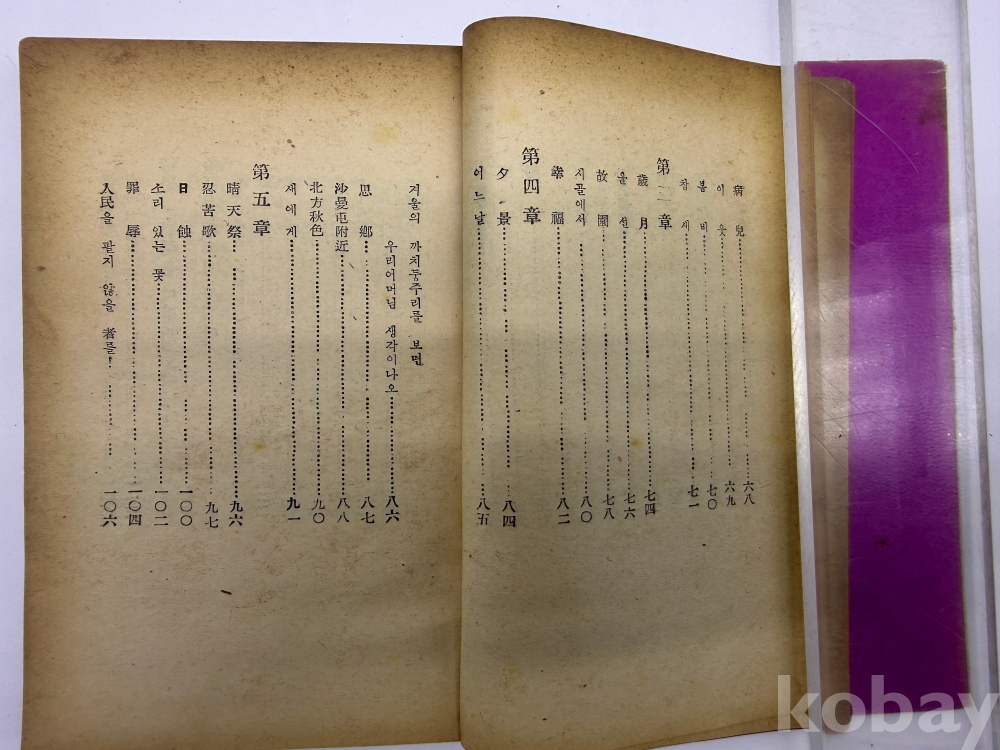 病兒……六八
이웃……六九
봄비……七〇
참새……七一
第三章
歲月……七四
……七六
故園……七八
시골에서……八〇
幸福……八二
第四章
夕景……八四
어느날……八五
겨울의 까치둥주리를 보면
우리어머님 생각이나오……八六
思鄕……八七
沙曼屯附近……八八
北方秋色……九〇
새에게……九一
第五章
晴天祭……九六
忍苦歌……九七
日蝕……一〇〇
소리 있는 꽃……一〇二
罪辱……一〇四
人民을 팔지 않을 者를!……一〇六
kobay